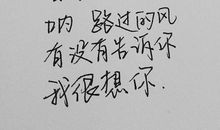 呐 路过的风
有没有告诉你
我很想你.